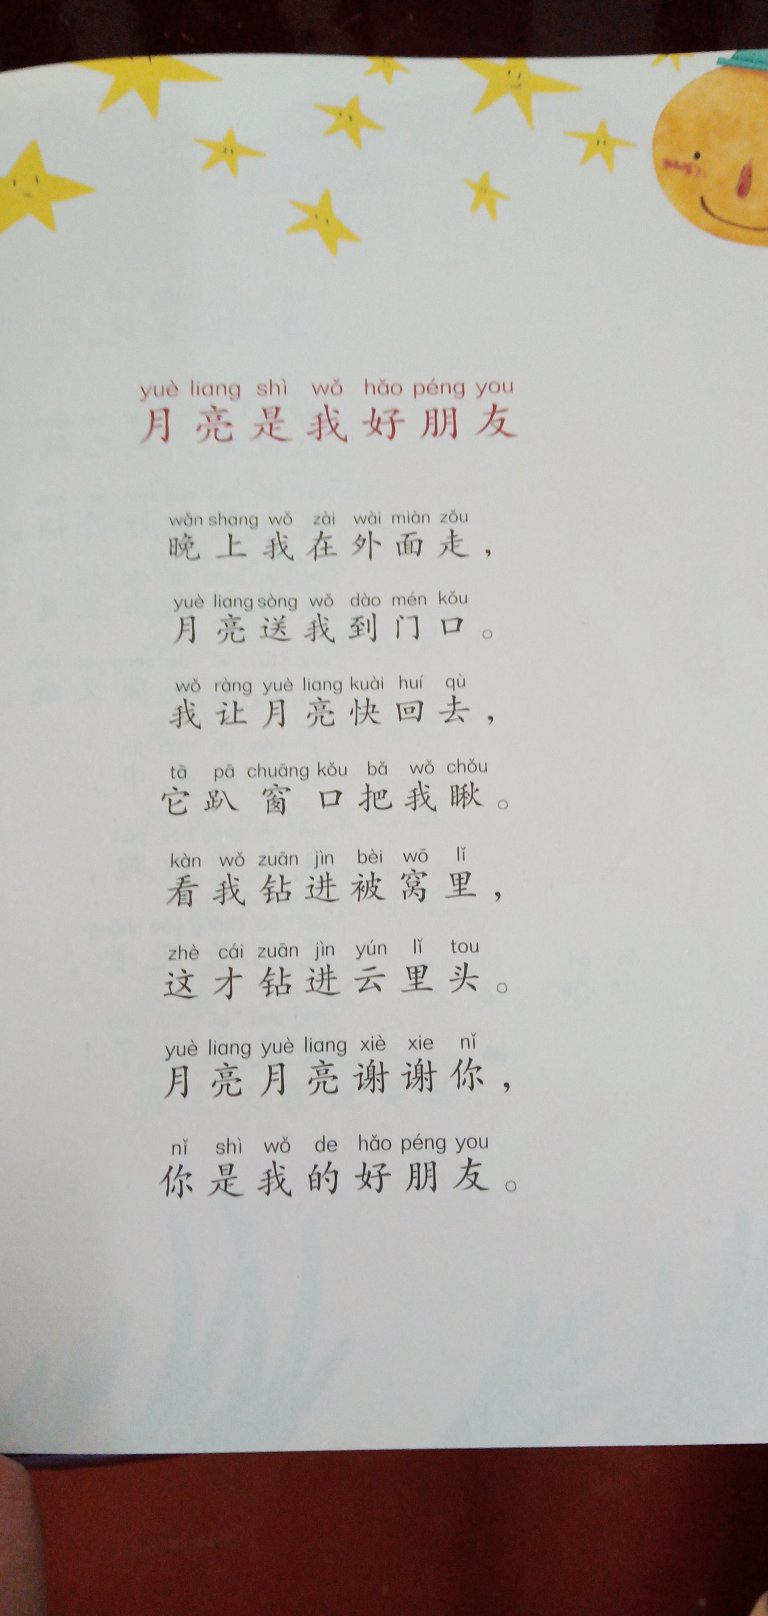 yuè liang shì wǒ hǎo péng you
月亮是我好朋友
wǎn shang wǒ zài wài miàn zǒu
晚上我在外面走，
yuè liang sòng wǒ dào mén kǒu
月亮送我到门口。
wǒ ràng yuè liang kuài huí qù
我让月亮快回去，
tā pā chuāng kǒu bǎ wǒ chǒu
它趴窗口把我瞅。
kàn wǒ zuān jìn bèi wō lǐ
看我钻进被窝里，
zhè cái zuān jìn yún lǐ tou
这才钻进云里头。
yuè liang yuè liang xiè xie nǐ
月亮月亮谢谢你，
nǐ shì wǒ de hǎo péng you
你是我的好朋友。